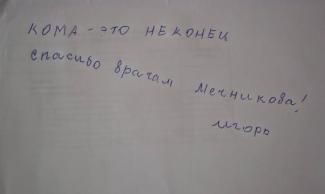 КОМА - ЭТО НЕ КОНЕЦ
спасибо врачам Мечникова!
Игорь